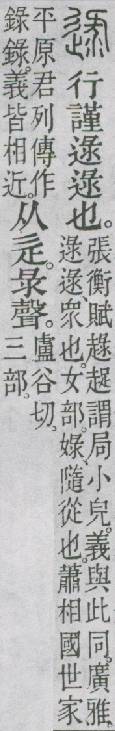 逯
行謹逯逯也。
張衡賦趢趗謂局小皃。義與此同。廣雅
逯逯、眾也。女部娽、隨從也。蕭相國世家
平原君列傳作
錄錄。義皆相近。
从辵。彔聲。
盧谷切。
三部。